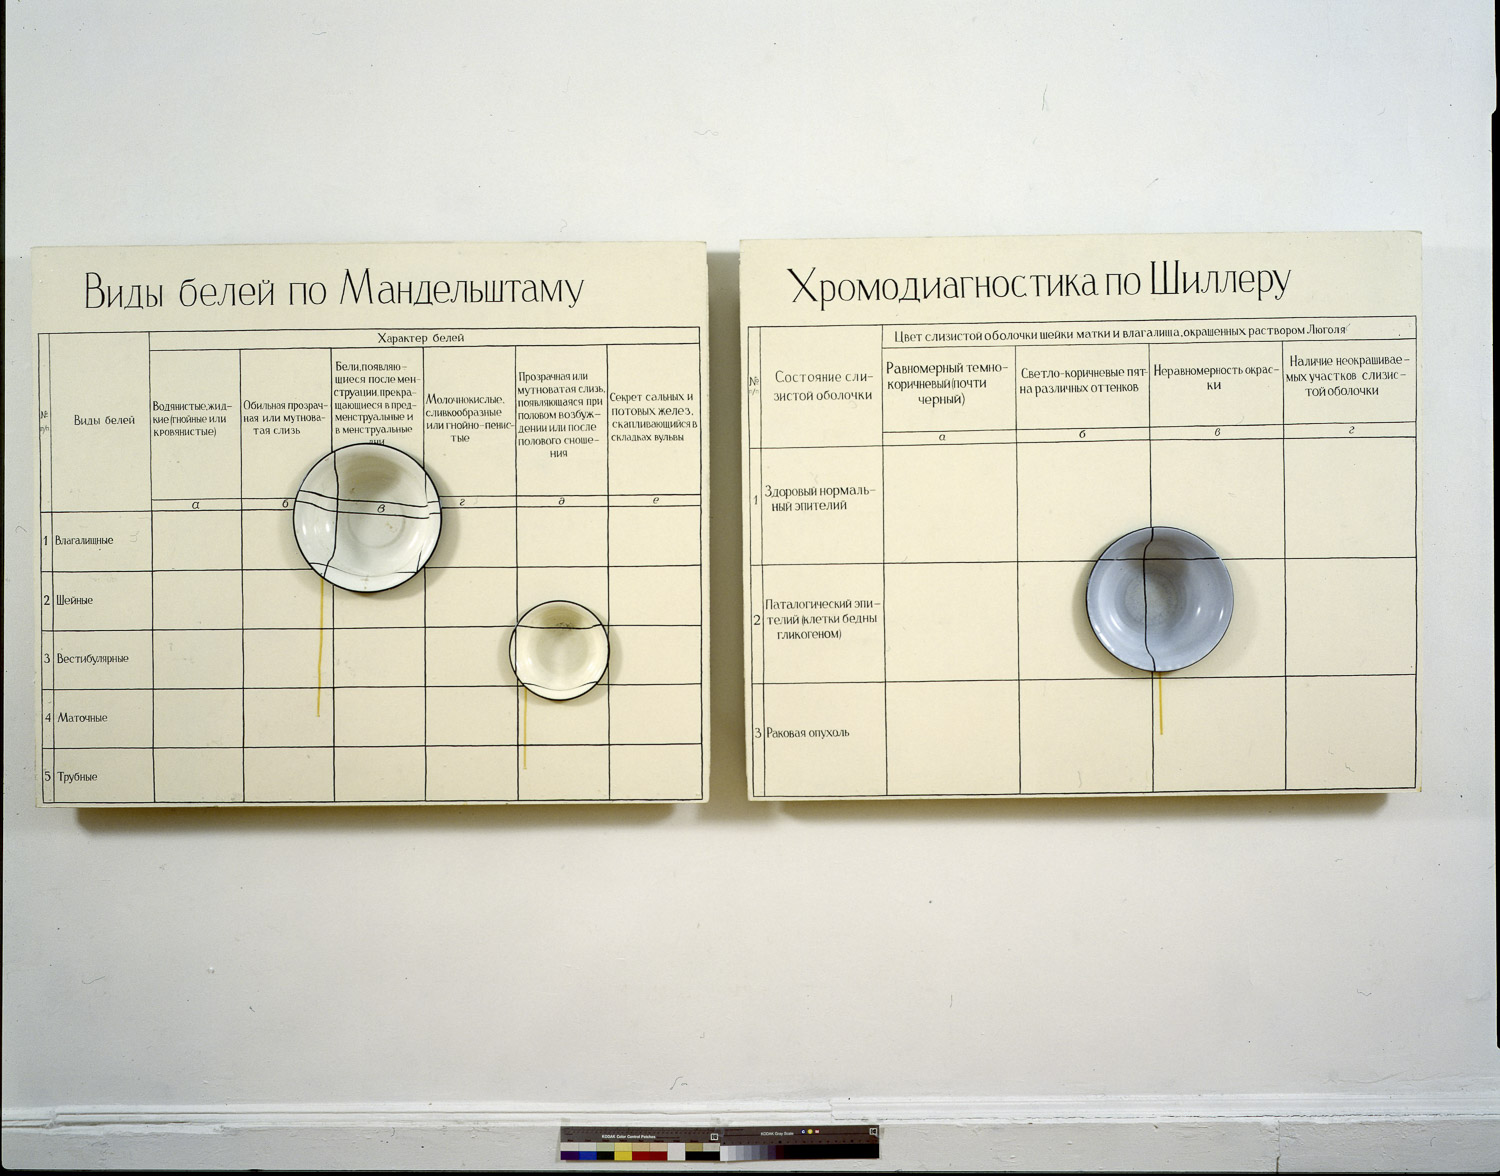 Виды белей по Мандельштаму
№ п/п
Виды белей
Характер белей
Водянистые, жид-
кие (гнойные или
кровянистые)
Обильная прозрач-
ная или мутнова-
тая слизь
Бели, появляю-
щиеся после мен-
струации, прекра-
щающиеся в пред-
менструальные и
в менструальные
дни
Молочнокислые,
сливкообразные
или гнойно-пенис-
тые
Прозрачная или
мутноватая слизь,
появляющаяся при
половом возбуж-
дении или после
полового сноше-
ния
Секрет сальных и
потовых желез,
скапливающийся в
складках вульвы
а
б
в
г
д
е
1 Влагалищные
2 Шейные
3 Вестибулярные
4 Маточные
5 Трубные
Хромодиагностика по Шиллеру
№ п/п
Состояние сли-
зистой оболочки
Цвет слизистой оболочки шейки матки и влагалища, окрашенных раствором Люголя
Равномерный темно-
коричневый (почти
черный)
Светло-коричневые пят-
на различных оттенков
Неравномерность окрас-
ки
Наличие неокрашивае-
мых участков слизис-
той оболочки
а
б
в
г
1 Здоровый нормаль-
ный эпителий
2 Паталогический эпи-
телий (клетки бедны
гликогеном)
3 Раковая опухоль
KODAK Color Control Patches
KODAK Gray Scale
C Y M